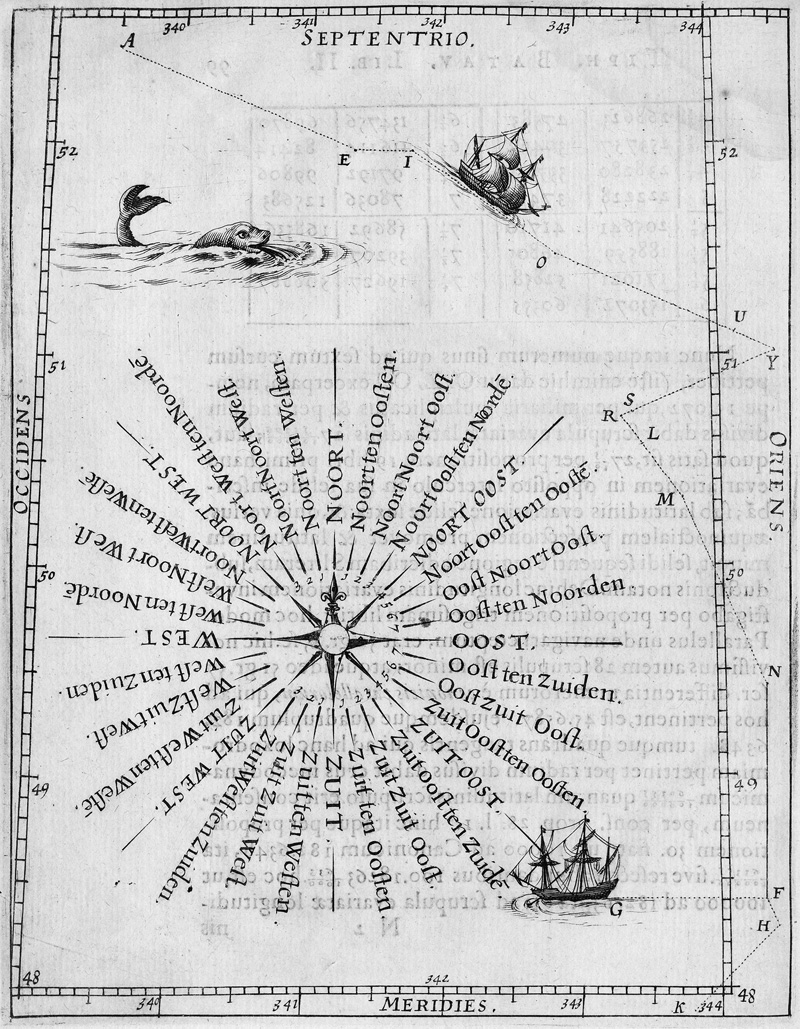 340 341 342 343 344
SEPTENTRIO.
A
52 E I 52
O
U
51 51 Y
S
R
L
OCCIDENS
ORIENS
M
50 50
N
49 49
NOORT.
Noort ten Ooſten.
Noort Noort Ooſt
Noort Ooſt ten Noordē
NOORT OOST
Noort Ooſt ten Ooſtē.
Ooſt Noort Ooſt.
Ooſt ten Noorden
OOST
Ooſt ten Zuiden.
Ooſt Zuit Ooſt
Zuit Ooſt ten Ooſten
ZUIT OOST.
Zuit Ooſt ten Zuidē
Zuit Zuit Ooſt.
Zuit ten Ooſten.
ZUIT
Zuit ten Weſten.
Zuit Zuit Weſt.
Zuit Weſt ten Zuiden
ZUIT WEST
Zuit Weſt ten Weſtē
Weſt Zuit Weſt.
Weſt ten Zuiden.
WEST.
Weſt ten Noordē.
Weſt Noort Weſt.
Noort Weſt ten Weſtē
NOORT WEST.
Noort Weſt ten Noordē
Noort Noort Weſt.
Noort ten Weſten
G
F
H
48 342 48
340 341 343 K 344
MERIDIES.